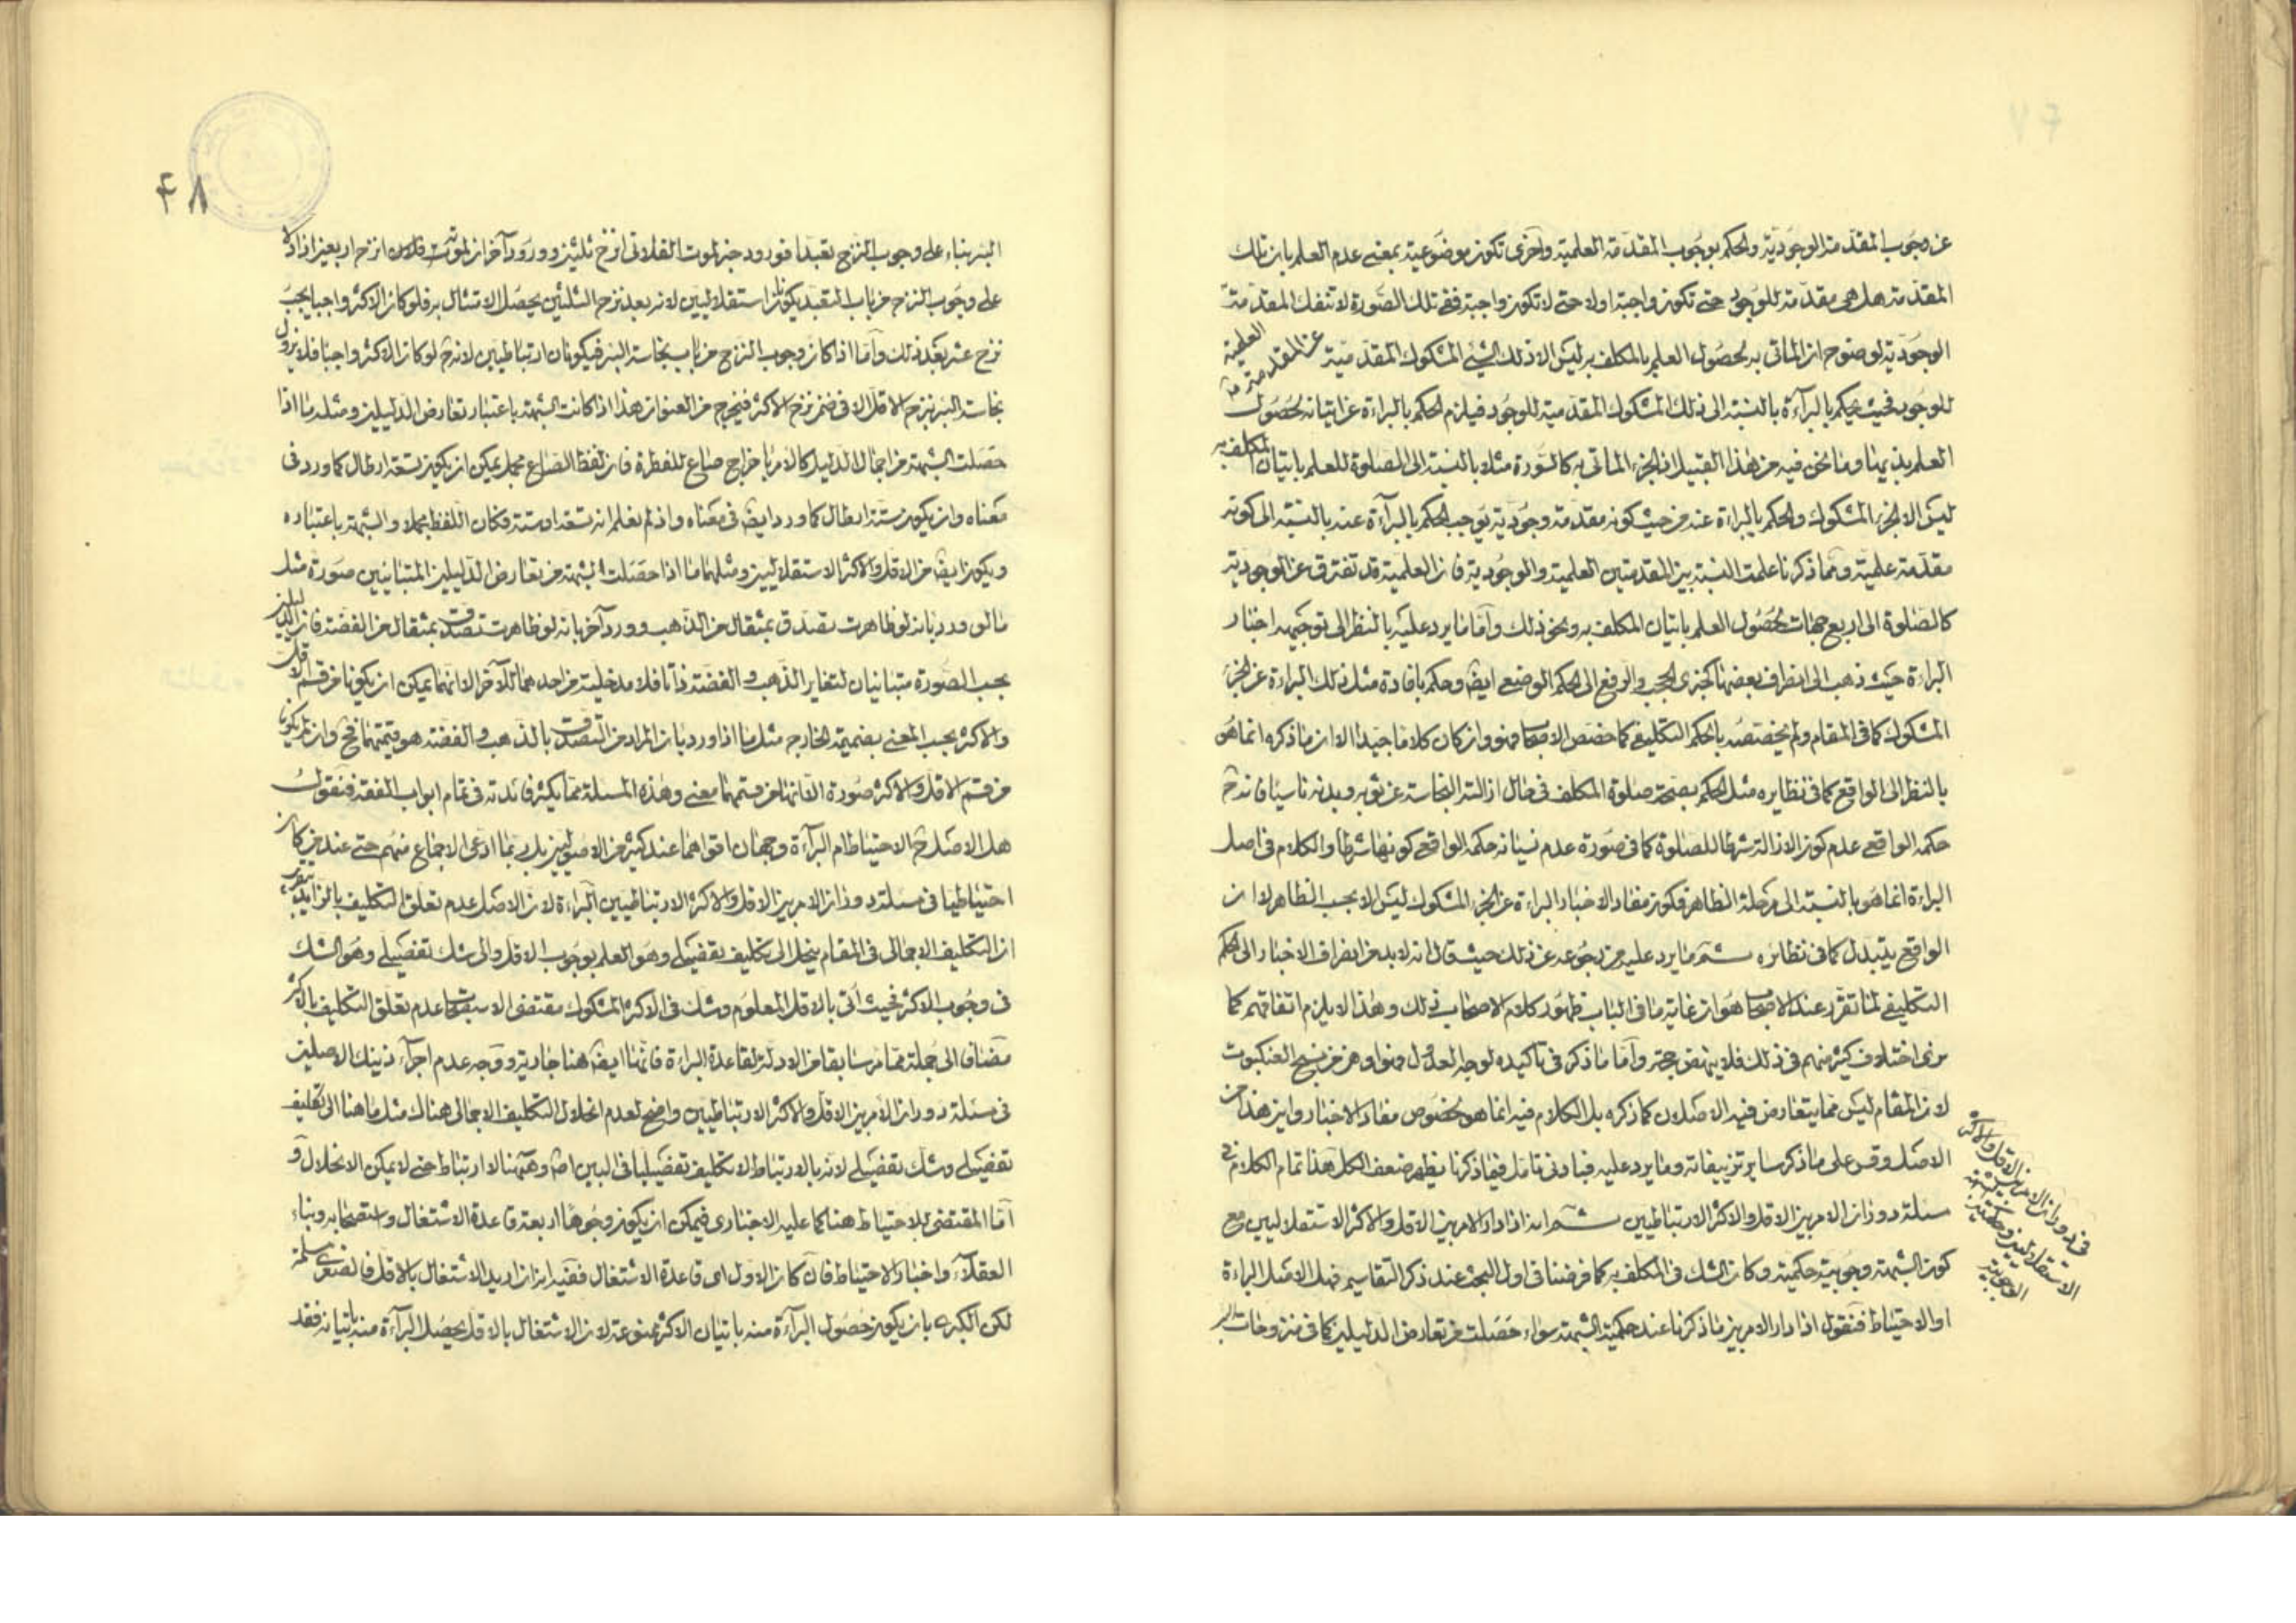 عن وجوب المقدمة الوجودية والحكم بوجوب المقدمة العلمية واخرى تكون موضوعية بمعنى عدم العلم بان تلك
المقدمة هل هى مقدمة للوجود حتى تكون واجبة اولا حتى لا تكون واجبة ففى تلك الصورة لا تنفك المقدمة
الوجودية لوضوح ان الماتى به لحصول العلم بالمكلف به ليس الا ذلك الشئ المشكوك المقدمية عن المقدمة العلمية
للوجود فحيث يحكم بالبرآءة بالنسبة الى ذلك المشكوك المقدمية للوجود فيلزم الحكم بالبراءة عن اتيانه لحصول
العلم يقينا وما نحن فيه من هذا القبيل اذ الجزء الماتى به كالسورة مثلا بالنسبة الى الصلوة للعلم باتيان المكلف به
ليس الا الجزء المشكوك والحكم بالبراءة عنه من حيث كونه مقدمة وجودية يوجب الحكم بالبرآءة عنه بالنسبة الى كونه
مقدمة علمية ومما ذكرنا علمت النسبة بين المقدمتين العلمية والوجودية فان العلمية قد تفترق عن الوجودية
كالصلوة الى اربع جهات لحصول العلم باتيان المكلف به ونحو ذلك واما ما يرد عليه بالنظر الى توجيهه اخبار
البراءة حيث ذهب الى انصراف بعضها كخبرى الحجب والرفع الى الحكم الوضعى ايضا وحكم بافادة مثل ذلك البراءة عن الجزء
المشكوك كما فى المقام ولم يخصصه بالحكم التكليفى كما خصص الاصحاب فهو وان كان كلاما جيدا الا ان ما ذكره انما هو
بالنظر الى الواقع كما فى نظايره مثل الحكم بصحة صلوة المكلف فى حال ازالة النجاسة عن ثوبه وبدنه ناسيا فانه ح
حكمه الواقعى عدم كون الازالة شرطا للصلوة كما فى صورة عدم نسيانه حكمه الواقعى كونها شرطا والكلام فى اصل
البراءة انما هو بالنسبة الى مرحلة الظاهر فكون مفاد الاخبار البراءة عن الجزء المشكوك ليس الا بحسب الظاهر لا ان
الواقع يتبدل كما فى نظائره ثم ما يرد عليه من رجوعه عن ذلك حيث قال انه لا بد من انصراف الاخبار الى الحكم
التكليفى لما تقرر عند الاصحاب هو ان غاية ما فى الباب ظهور كلام الاصحاب فى ذلك وهذا لا يلزم اتفاقهم كما
نرى اختلاف كثير منهم فى ذلك فلا ينهض حجة واما ما ذكر فى تاكيده لوجه العدول فهو اوهن من نسج العنكبوت
لان المقام ليس مما يتعارض فيه الاصلان كما ذكره بل الكلام فيه انما هو بخصوص مفاد الاخبار واين هذا من
الاصل وقس على ما ذكر ساير تزييفاته وما يرد عليه فبادنى تامل فيما ذكرنا يظهر ضعف الكل هذا تمام الكلام فى
مسئلة دوران الامر بين الاقل والاكثر الارتباطيين ثم انه اذا دار الامر بين الاقل والاكثر الاستقلاليين مع
كون الشبهة وجوبية حكمية وكان الشك فى المكلف به كما فرضنا فى اول البحث عند ذكر التقاسيم فهل الاصل البراءة
او الاحتياط فنقول اذا دار الامر بين ما ذكرنا عند حكمية الشبهة سواء حصلت من تعارض الدليلين كما فى منزوحات البئر
فى دوران الامر بين الاقل والاكثر
الاستقلاليين
الوجوبية
۴۸
البئر بناء على وجوب النزح تعبدا فورود خبر لموت الفلانى انزح ثلثين وورود آخر ان لموته فلان انزح اربعين اذ
على وجوب النزح من باب التعبد يكونان استقلاليين لانه بعد نزح الثلثين يحصل الامتثال به فلو كان الاكثر واجبا يجب
نزح عشر بعد ذلك واما اذا كان وجوب النزح من باب نجاسة البئر فيكونان ارتباطيين لانه ح لو كان الاكثر واجبا فلا يزول
نجاسة البئر بنزح الاقل الا فى ضمن نزح الاكثر فيخرج من العنوان هذا اذا كانت الشبهة باعتبار تعارض الدليلين ومثله ما اذا
حصلت الشبهة من اجمال الدليل كالامر باخراج صاع للفطرة فان لفظ الصاع مجمل يمكن ان يكون تسعة ارطال كما ورد فى
معناه وان يكون ستة ارطال كما ورد ايضا فى معناه واذ لم نعلم انه تسعة او ستة فكان اللفظ مجملا والشبهة باعتباره
ويكون ايضا من الاقل والاكثر الاستقلاليين ومثلهما ما اذا حصلت الشبهة من تعارض الدليلين المتباينين صورة مثل
ما لو ورد بانه لو ظاهرت تصدق بمثقال من الذهب وورد آخر بانه لو ظاهرت تصدق بمثقال من الفضة فان الدليلين
بحسب الصورة متباينان لتغاير الذهب والفضة ذاتا فلا مدخلية من احدهما للآخر الا انهما يمكن ان يكونا من قسم الاقل
والاكثر بحسب المعنى بضميمة الخارج مثل ما اذا ورد بان المراد من التصدق بالذهب والفضة هو قيمتهما فح وان لم يكونا
من قسم الاقل والاكثر صورة الا انهما من قسمهما معنى وهذه المسئلة مما يكثر فائدته فى تمام ابواب الفقه فنقول
هل الاصل ح الاحتياط ام البرآءة وجهان اقواهما عند كثير من الاصوليين بل ربما ادعى الاجماع منهم حتى عند من كان
احتياطيا فى مسئلة دوران الامر بين الاقل والاكثر الارتباطيين البراءة لان الاصل عدم تعلق التكليف بالزايد
ان التكليف الاجمالى فى المقام ينحل الى تكليف تفصيلى وهو العلم بوجوب الاقل والى شك تفصيلى وهو الشك
فى وجوب الاكثر فحيث اتى بالاقل المعلوم وشك فى الاكثر المشكوك مقتضى الاستصحاب عدم تعلق التكليف بالاكثر
مضاف الى جملة مما مر سابقا من الادلة لقاعدة البراءة فانها ايضا هنا جارية ووجه عدم اجرآء ذينك الاصلين
فى مسئلة دوران الامر بين الاقل والاكثر الارتباطيين واضح لعدم انحلال التكليف الاجمالى هناك مثل ما هنا الى تكليف
تفصيلى وشك تفصيلى لانه بالارتباط لا تكليف تفصيليا فى البين اصلا وههنا لا ارتباط حتى لا يمكن الانحلال و
اما المقتضى للاحتياط هنا كما عليه الاخبارى فيمكن ان يكون وجوها اربعة قاعدة الاشتغال واستصحابه وبناء
العقلاء واخبار الاحتياط فان كان الاول اى قاعدة الاشتغال ففيه ان اريد الاشتغال بالاقل فالصغرى مسلمة
لكن الكبرى بان يكون حصول البرآءة منه باتيان الاكثر ممنوعة لان الاشتغال بالاقل يحصل البرآءة منه باتيانه فقد